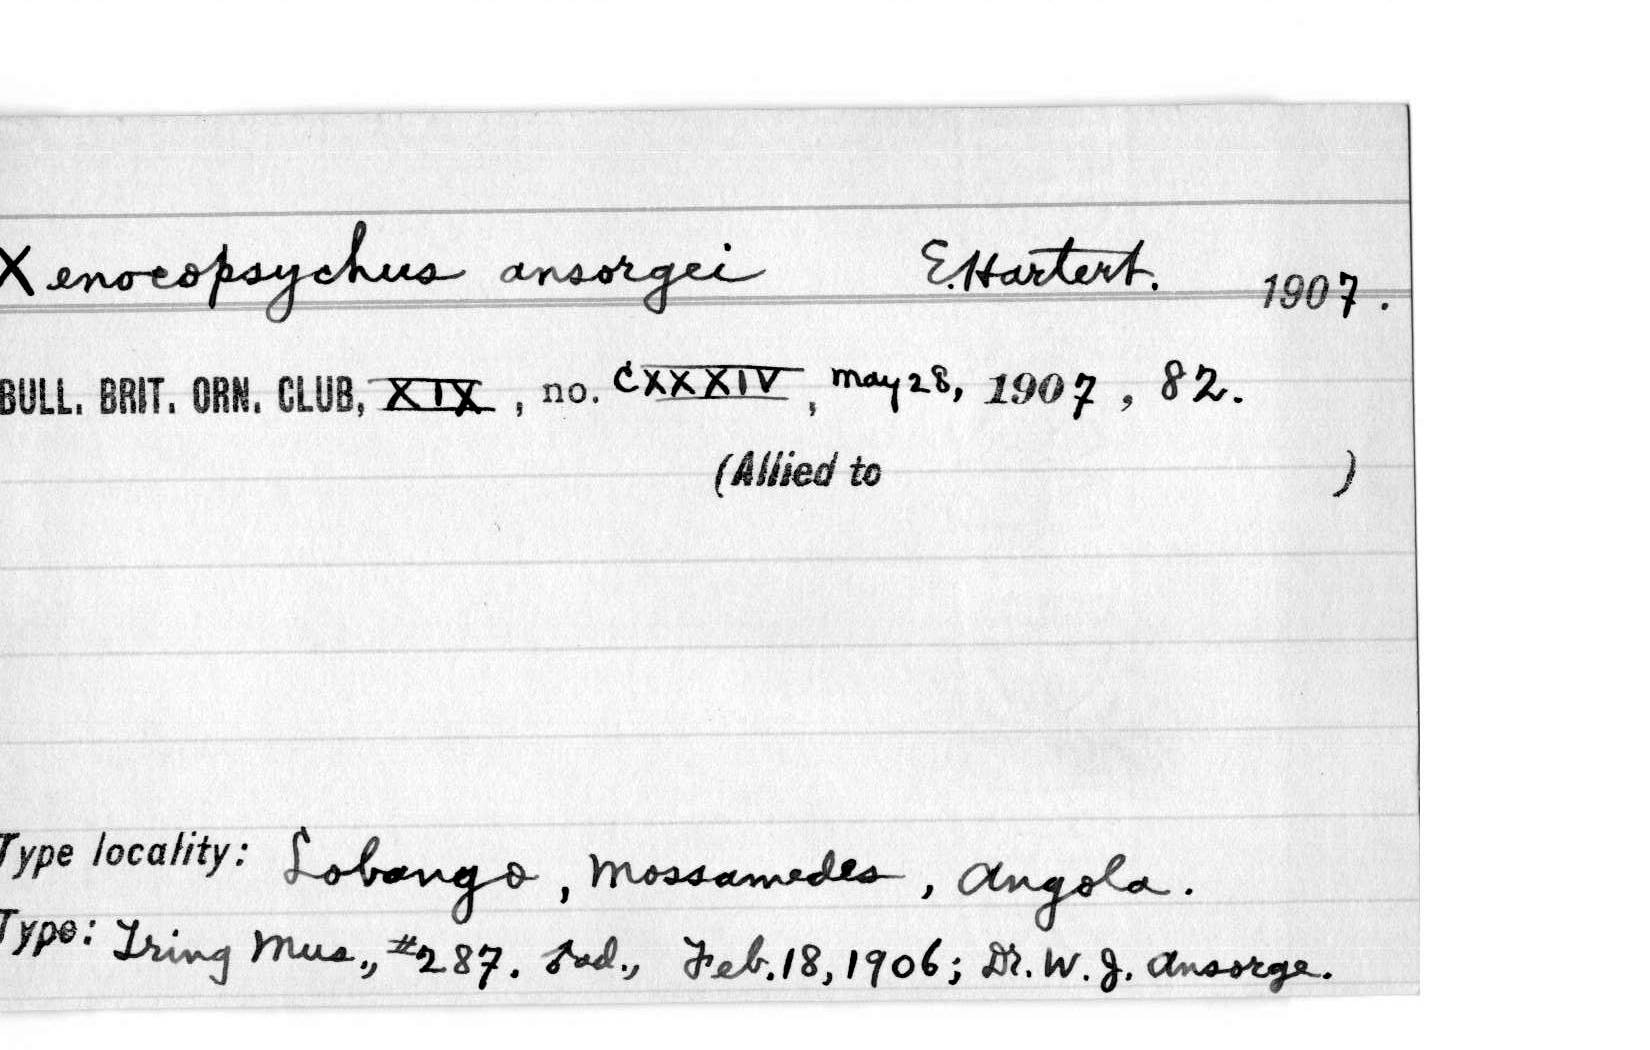 Xenocopsychus ansorgei E. Hartert. 1907.
BULL. BRIT. ORN. CLUB, XIX, no. CXXXIV, May 28, 1907, 82.
(Allied to )
Type locality: Lobango, Mossamedes, Angola.
Type: Tring Mus., #287. ♂ad., Feb. 18, 1906; Dr. W. J. Ansorge.